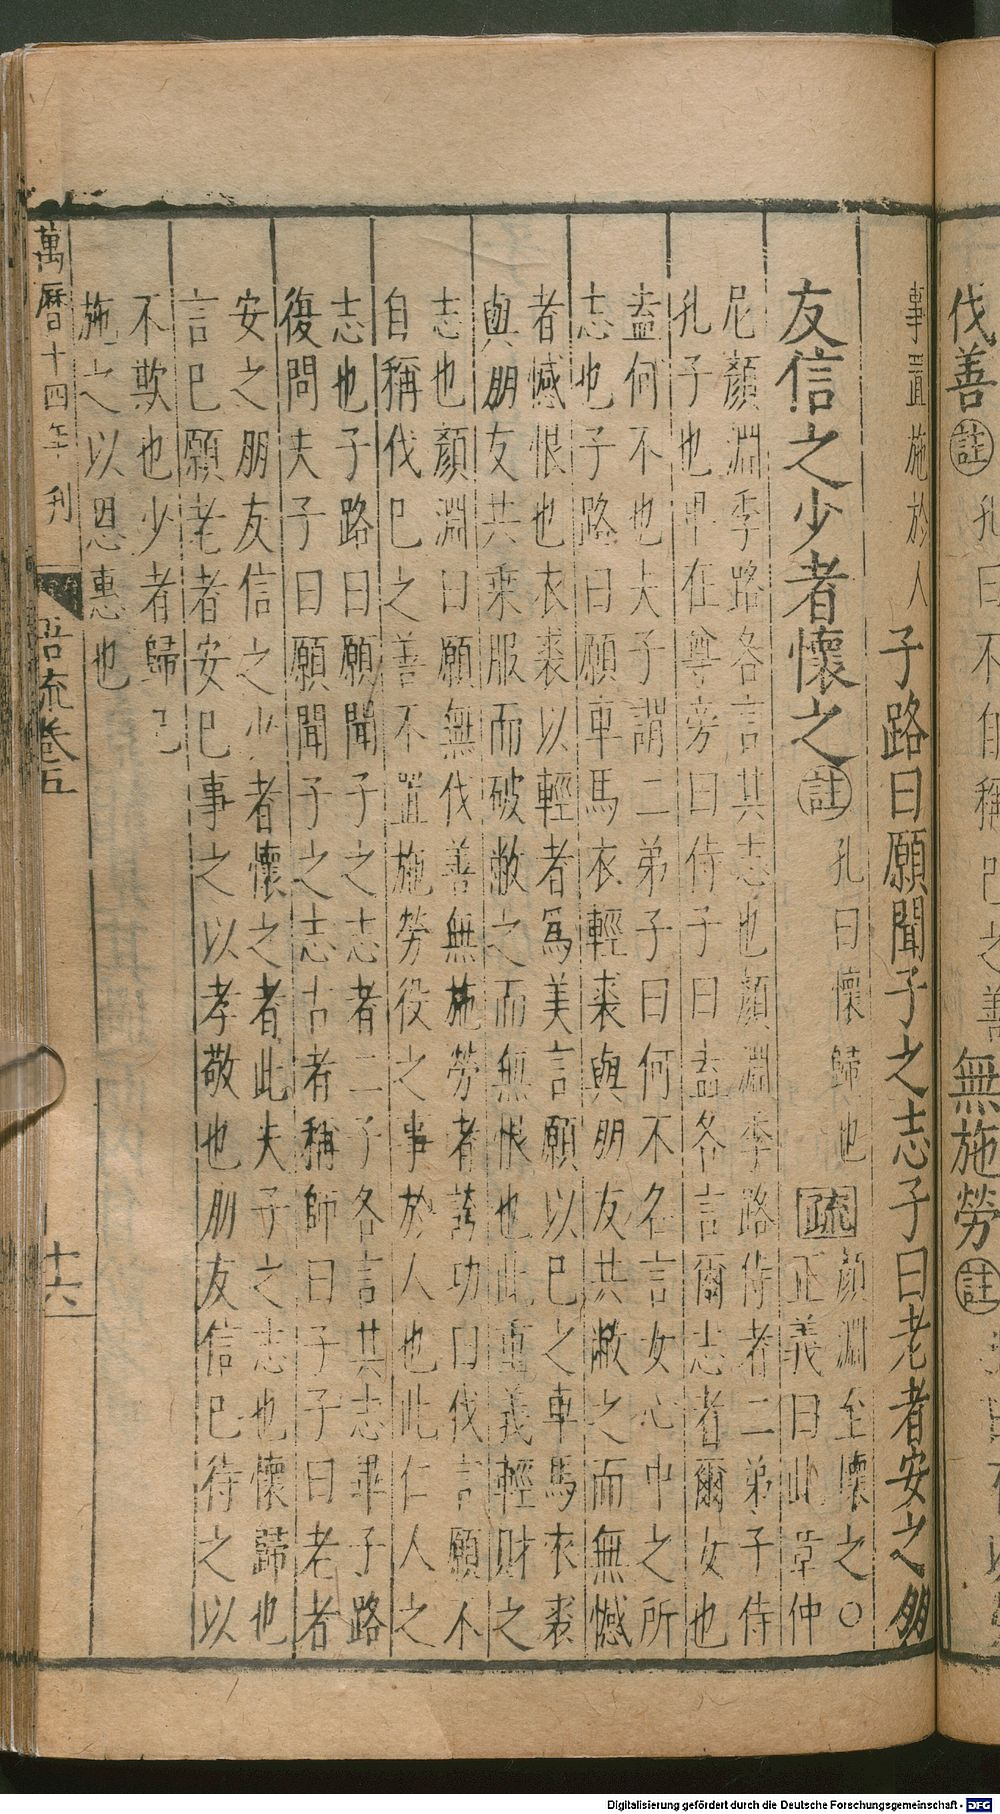 伐善註孔曰不自稱己之善無施勞註
事置施於人子路曰願聞子之志子曰老者安之朋
友信之少者懷之註孔曰懷歸也疏顏淵至懷之○
正義曰此章仲
尼顏淵季路各言其志也顏淵季路侍者二弟子侍
孔子也卑在尊旁曰侍子曰盍各言爾志者爾女也
盍何不也夫子謂二弟子曰何不各言女心中之所
志也子路曰願車馬衣輕裘與朋友共敝之而無憾
者憾恨也衣裘以輕者爲美言願以己之車馬衣裘
與朋友共乘服而破敝之而無恨也此重義輕財之
志也顏淵曰願無伐善無施勞者誇功曰伐言願不
自稱伐己之善不置施勞役之事於人也此仁人之
志也子路曰願聞子之志者二子各言其志畢子路
復問夫子曰願聞子之志古者稱師曰子子曰老者
安之朋友信之少者懷之者此夫子之志也懷歸也
言己願老者安己事之以孝敬也朋友信己待之以
不欺也少者歸己
施之以恩惠也
萬曆十四年刊 語疏卷五 十六
Digitalisierung gefördert durch die Deutsche Forschungsgemeinschaft - DFG